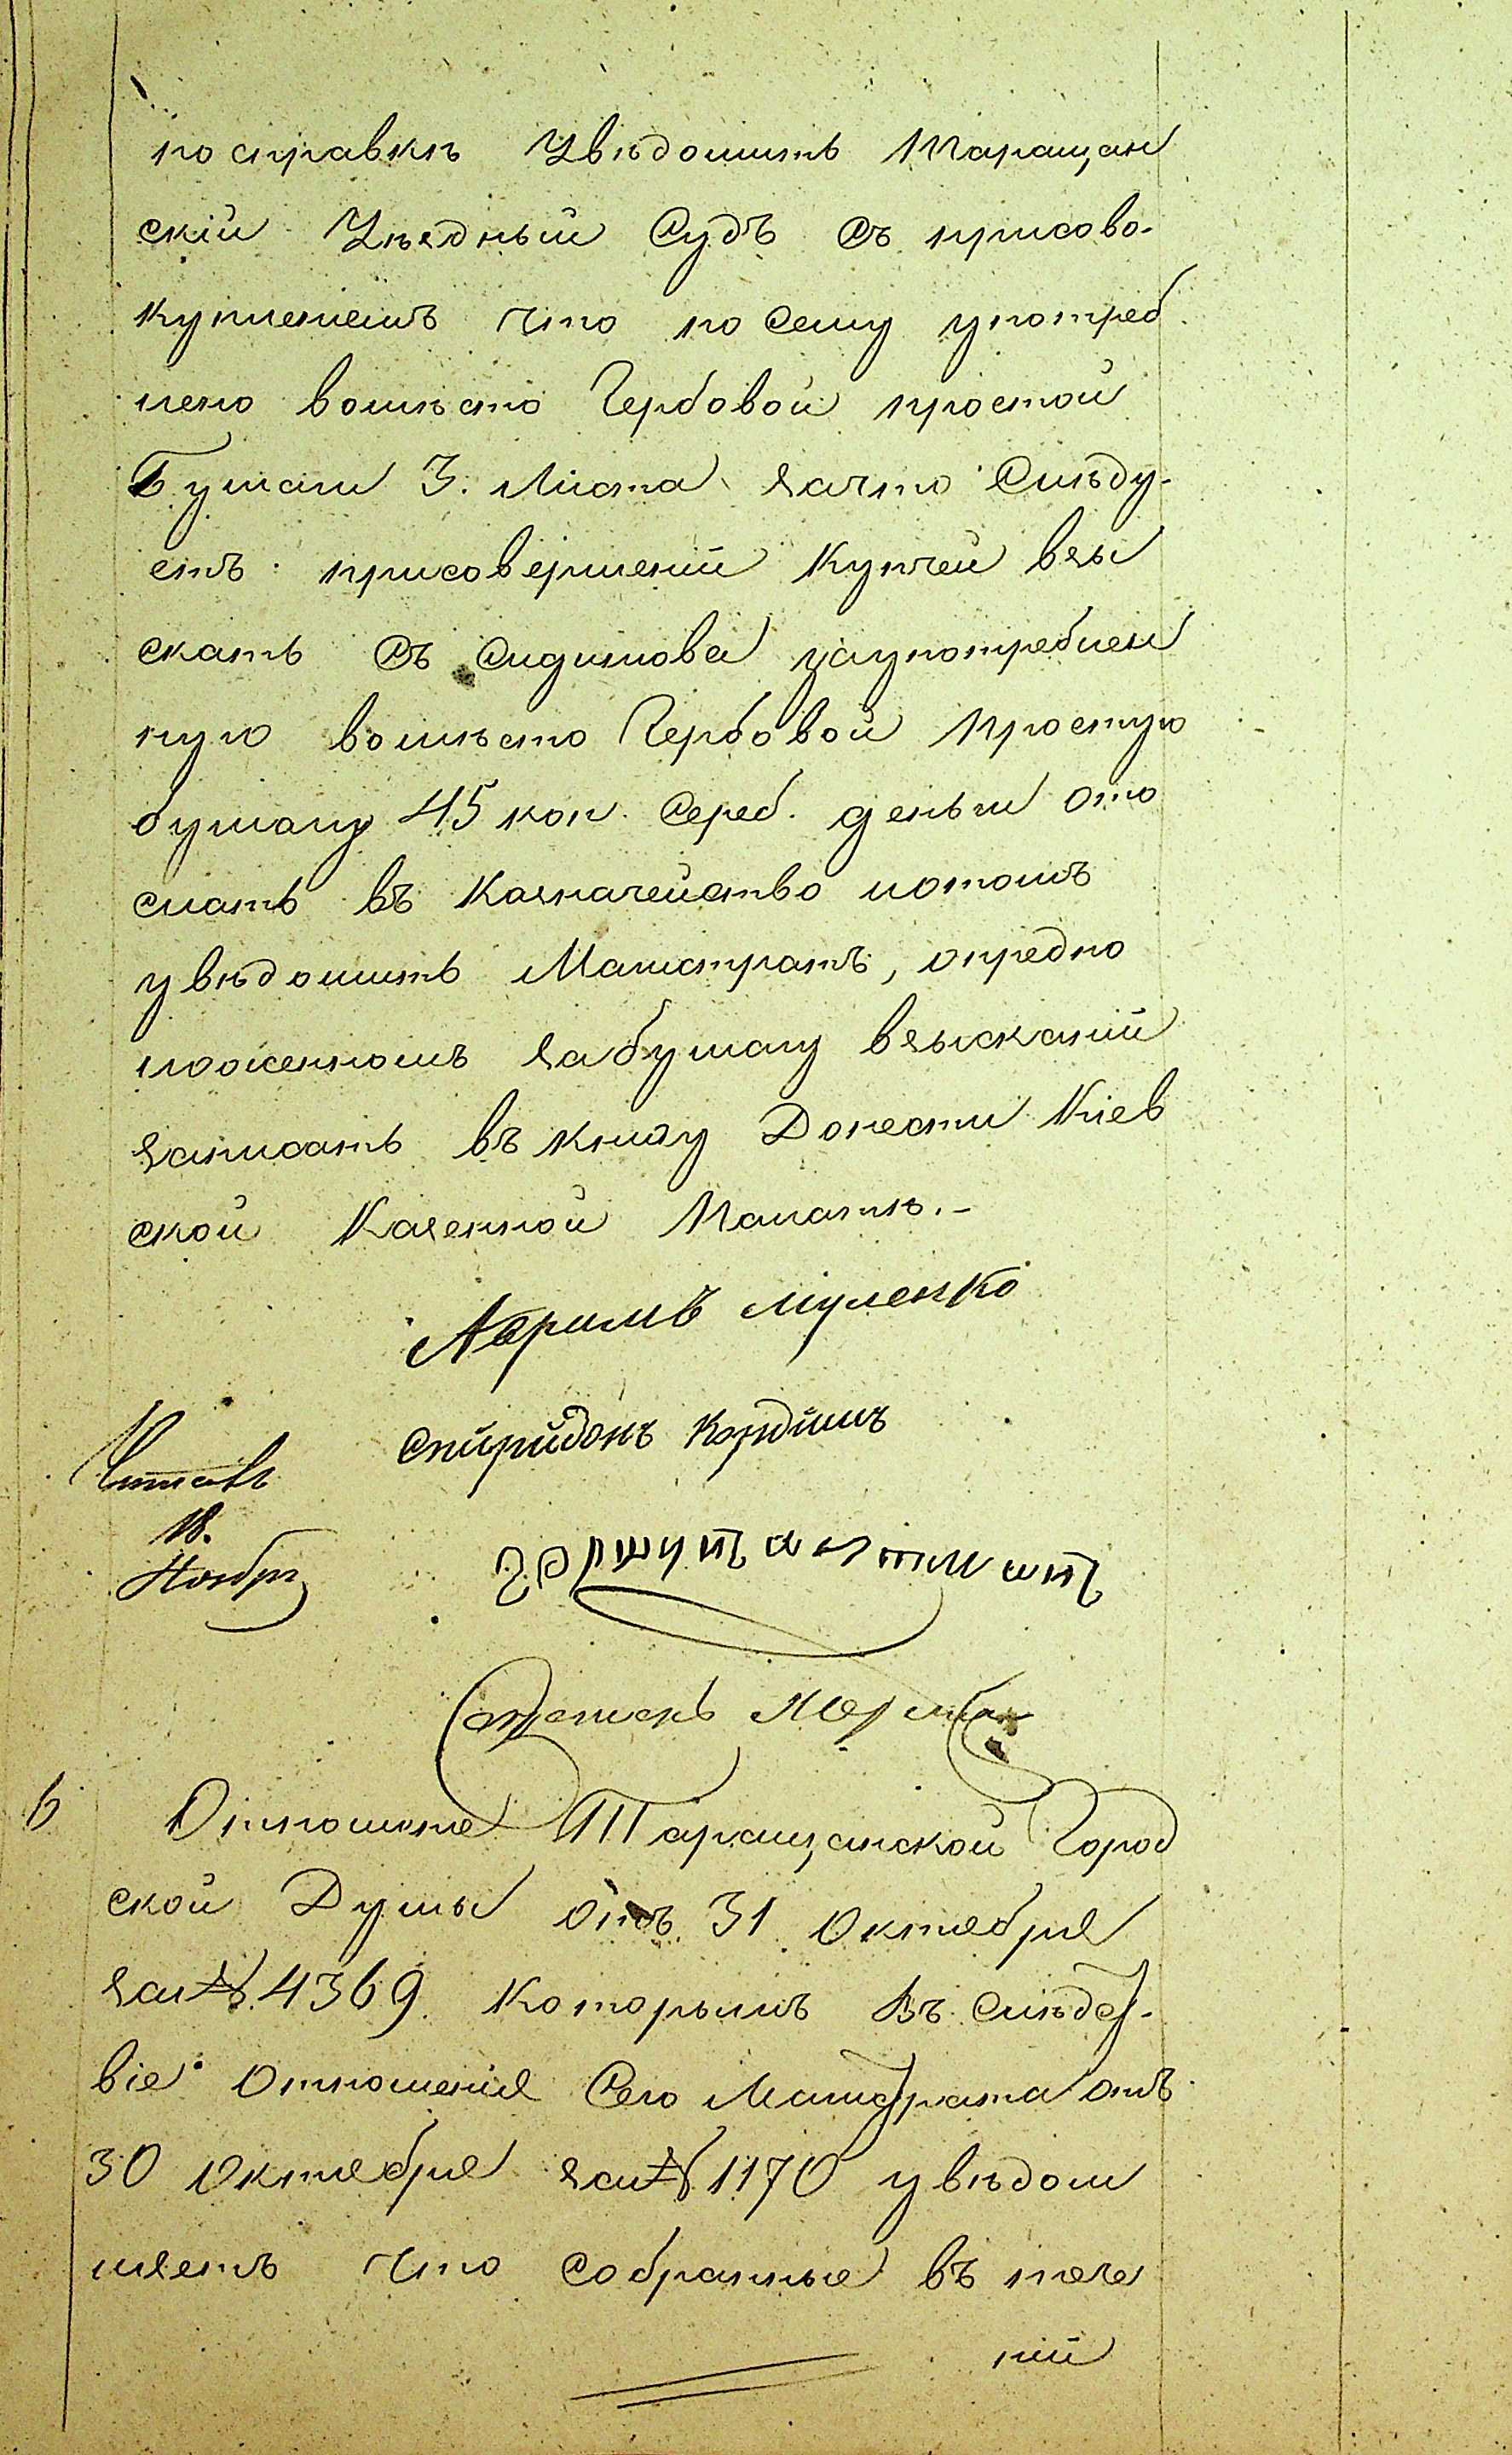 по справкѣ Увѣдомить Таращан
скій Уѣздный Судъ Съ присово-
купленіемъ что по Сему употреб
лено вомѣсто Гербовой простой
Бумаги 3. Листа зачто Слѣду-
етъ присовершеніи Купчей взы
скать Съ заупотреблен
ную вомѣсто Гербовой простую
бумагу 45 коп. Сереб. деньги ото
слать въ Казначейство потомъ
увѣдомить Магистратъ, опредпо
ложенномъ забумагу взысканіи
записать въ книгу Донести Кіев
ской Казенной Палатѣ.-
Спиридонъ
Читалъ
18.
Ноября
6 Отношеніе Таращанской Город
ской Думы отъ 31 Октября
за № 4369. Которымъ въ Слѣдст-
віе Отношенія Сего Магистрата отъ
30 Октября за № 1170 увѣдом
ляетъ что Собранные въ тече
ніи